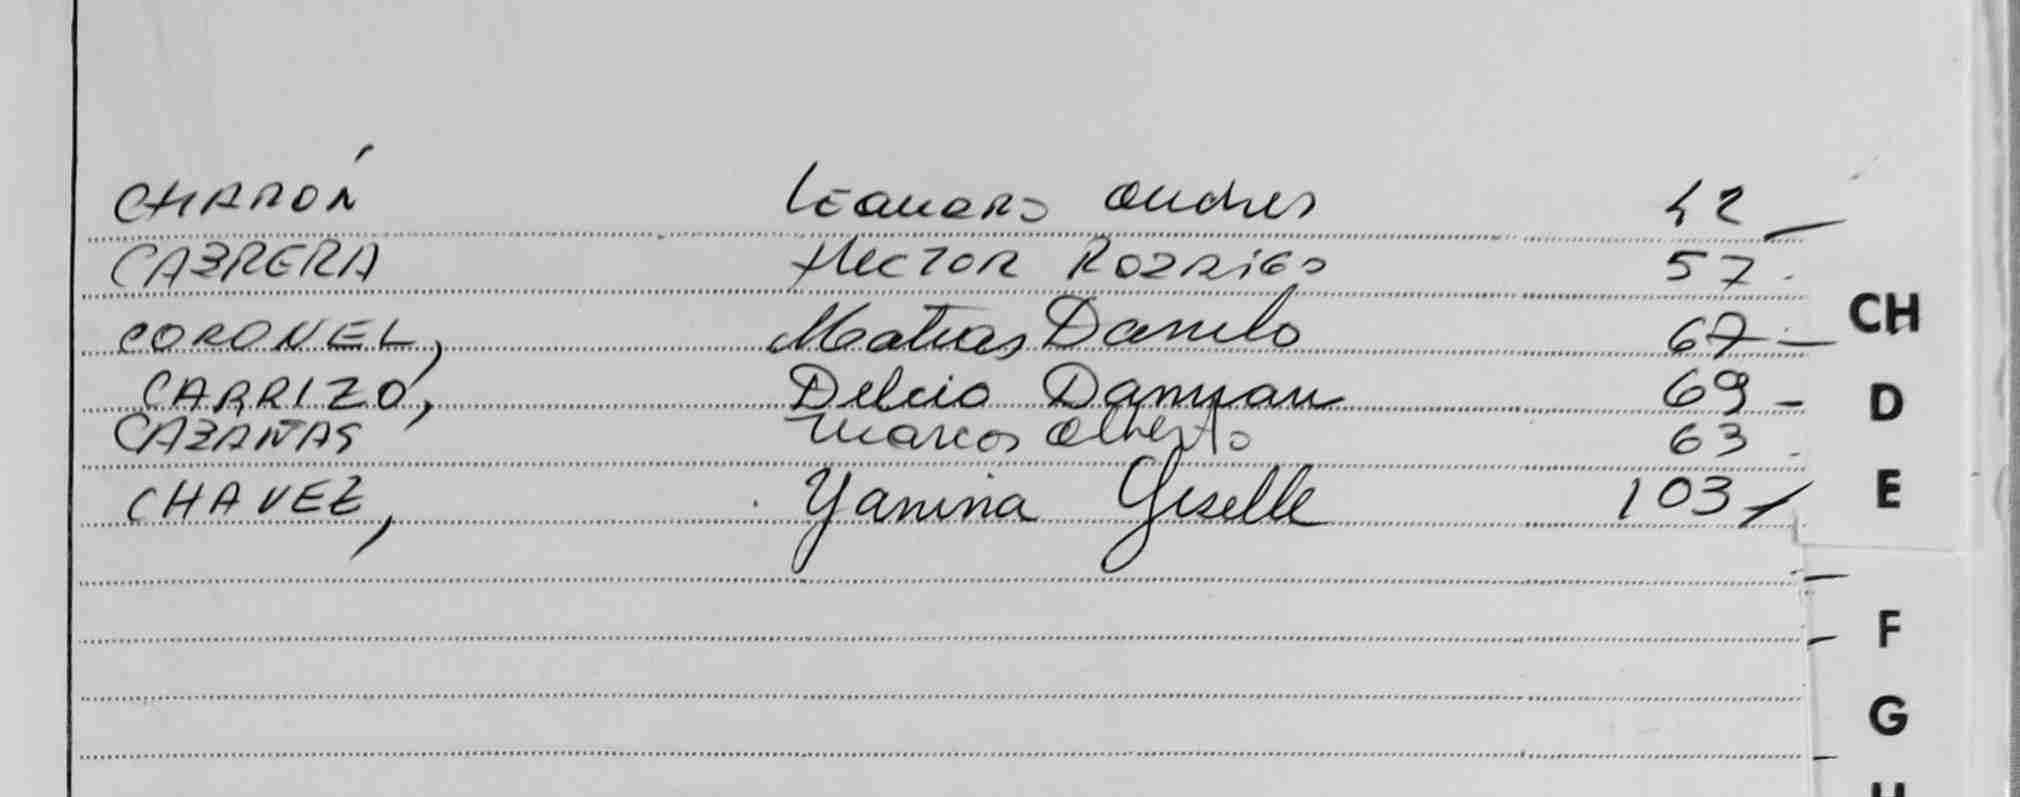 CHARÓN Leandro Andres 42
CABRERA Hector Rodrigo 57
CORONEL, Matias Danilo 67
CARRIZO, Delcio Damian 69
CABAÑAS Marcos Alberto 63
CHAVEZ, Yanina Giselle 103
CH
D
E
F
G
H